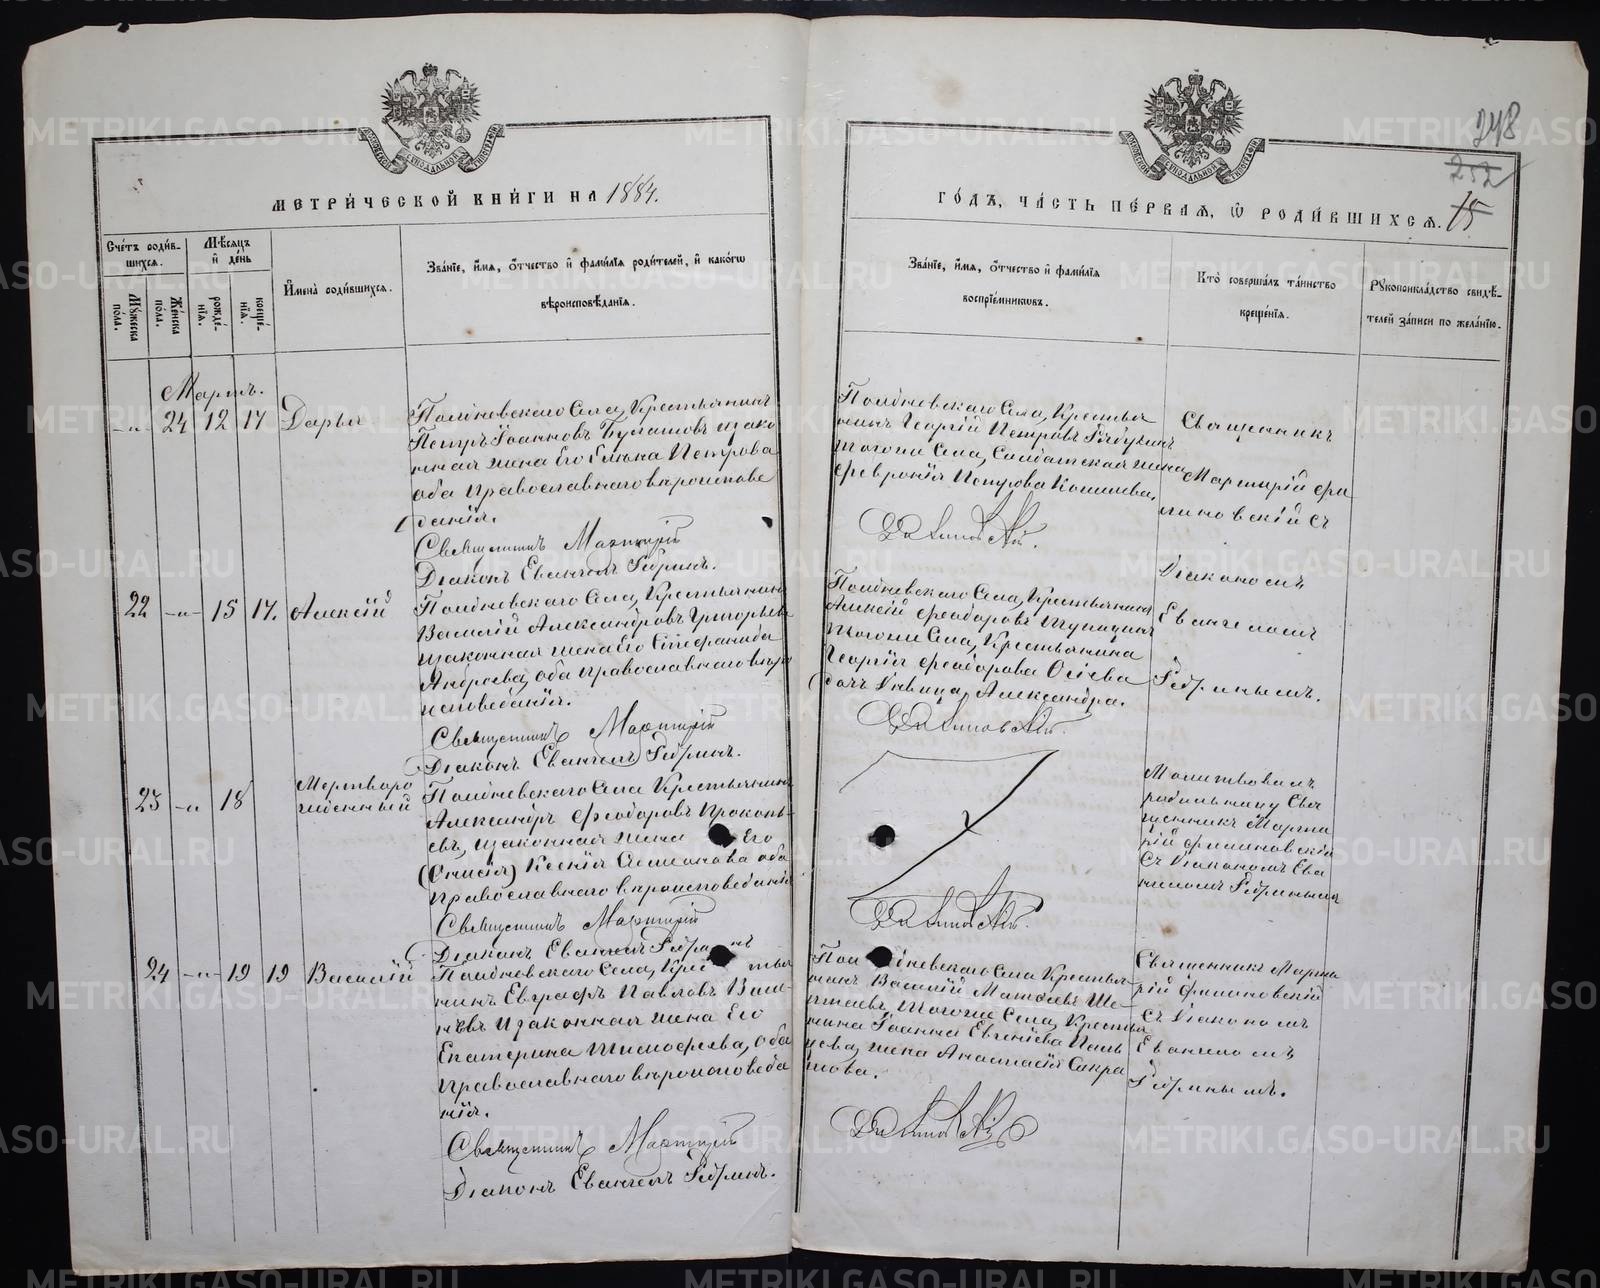 МЕТРИ́ЧЕСКОЙ КНИ́ГИ НА 1884.
ГО́ДЪ, ЧА́СТЬ ПЕ́РВАЯ, Ѿ РОДИ́ВШИХСЯ.
248
252
15
Сче́тъ роди́в-
шихся.
Мѣ́сяцъ
и҆ де́нь
Мꙋ́жеска
пола.
Же́нска
пола.
рожде́-
нїя.
креще́-
нїя.
И҆мена̀ роди́вшихся.
Зва́нїе, и҆́мя, ѻ҆́тчество и҆ фами́лїя роди́телей, и҆ како́гѡ
вѣроисповѣ́данїя.
Зва́нїе, и҆́мя, ѻ҆́тчество и҆ фами́лїя
воспрїе́мникѡвъ.
Кто̀ соверша́лъ та́инство
креще́нїя.
Рꙋкоприкла́дство свидѣ́-
телей за́писи по жела́нїю.
Мартъ.
-„- 24 12 17 Дарья
Полдневскаго Села, Крестьянинъ
Петръ Іоанновъ Булатовъ и зако
нная жена его Петрова
оба Православнаго вѣроисповѣ
данія.
Священникъ Мартирій
Діаконъ Евангелъ Ребринъ.
Полдневскаго Села, Крестья
нинъ Георгій Петровъ
тогоже Села, Солдатская жена
Февронія Петрова
Священникъ
Мартирій Фи
линовскій съ
Діакономъ
Евангеломъ
Ребринымъ.
22 -„- 15 17. Алексій
Полдневскаго Села, Крестьянинъ
Василій Александровъ Григорьевъ
и законная жена его Стефанида
Андреева, оба православнаго вѣро
исповѣданія.
Священникъ Мартирій
Діаконъ Евангелъ Ребринъ.
Полдневскаго Села, Крестьянинъ
Алексій Феодоровъ
тогоже Села, Крестьянина
Георгія Феодорова
дочь дѣвица, Александра.
23 -„- 18 Мертворо
жденный
Полдневскаго Села Крестьянинъ
Александръ Феодоровъ Прокопь-
евъ, и законная жена его
Ксенія оба
Православнаго вѣроисповѣданія
Священникъ Мартирій
Діаконъ Евангелъ Ребринъ
Молитвовалъ
родильницу Свя
щенникъ Марти
рій Филиновскій
съ Діакономъ Ева
нгеломъ Ребринымъ
24 -„- 19 19 Василій
Полдневскаго Села, Крестья
нинъ Евграфъ Павловъ
и законная жена его
Екатерина Тимофеева, оба
Православнаго вѣроисповѣда
нія.
Священникъ Мартирій
Діаконъ Евангелъ Ребринъ.
Полдневскаго Села Крестья-
нинъ Василій Матвеевъ
тогоже Села, Крестья
нина Іоанна Евгеніева
жена Анастасія
Священникъ Марти
рій Филиновскій
съ Діакономъ
Евангеломъ
Ребринымъ.
METRIKI.GASO-URAL.RU